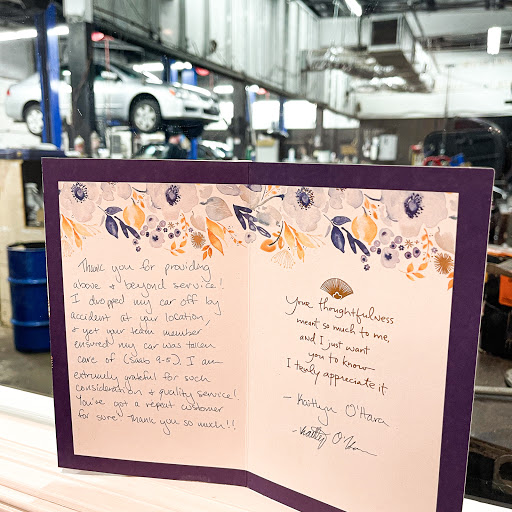 Thank you for providing
above & beyond service!
I dropped my car off by
accident at your location,
& yet your team member
ensured my car was taken
care of (Saab 9-5). I am
extremely grateful for such
consideration & quality service!
You've got a repeat customer
for sure! Thank you so much!!
Your thoughtfulness
meant so much to me,
and I just want
you to know—
I truly appreciate it
- Kaitlyn O'Hara